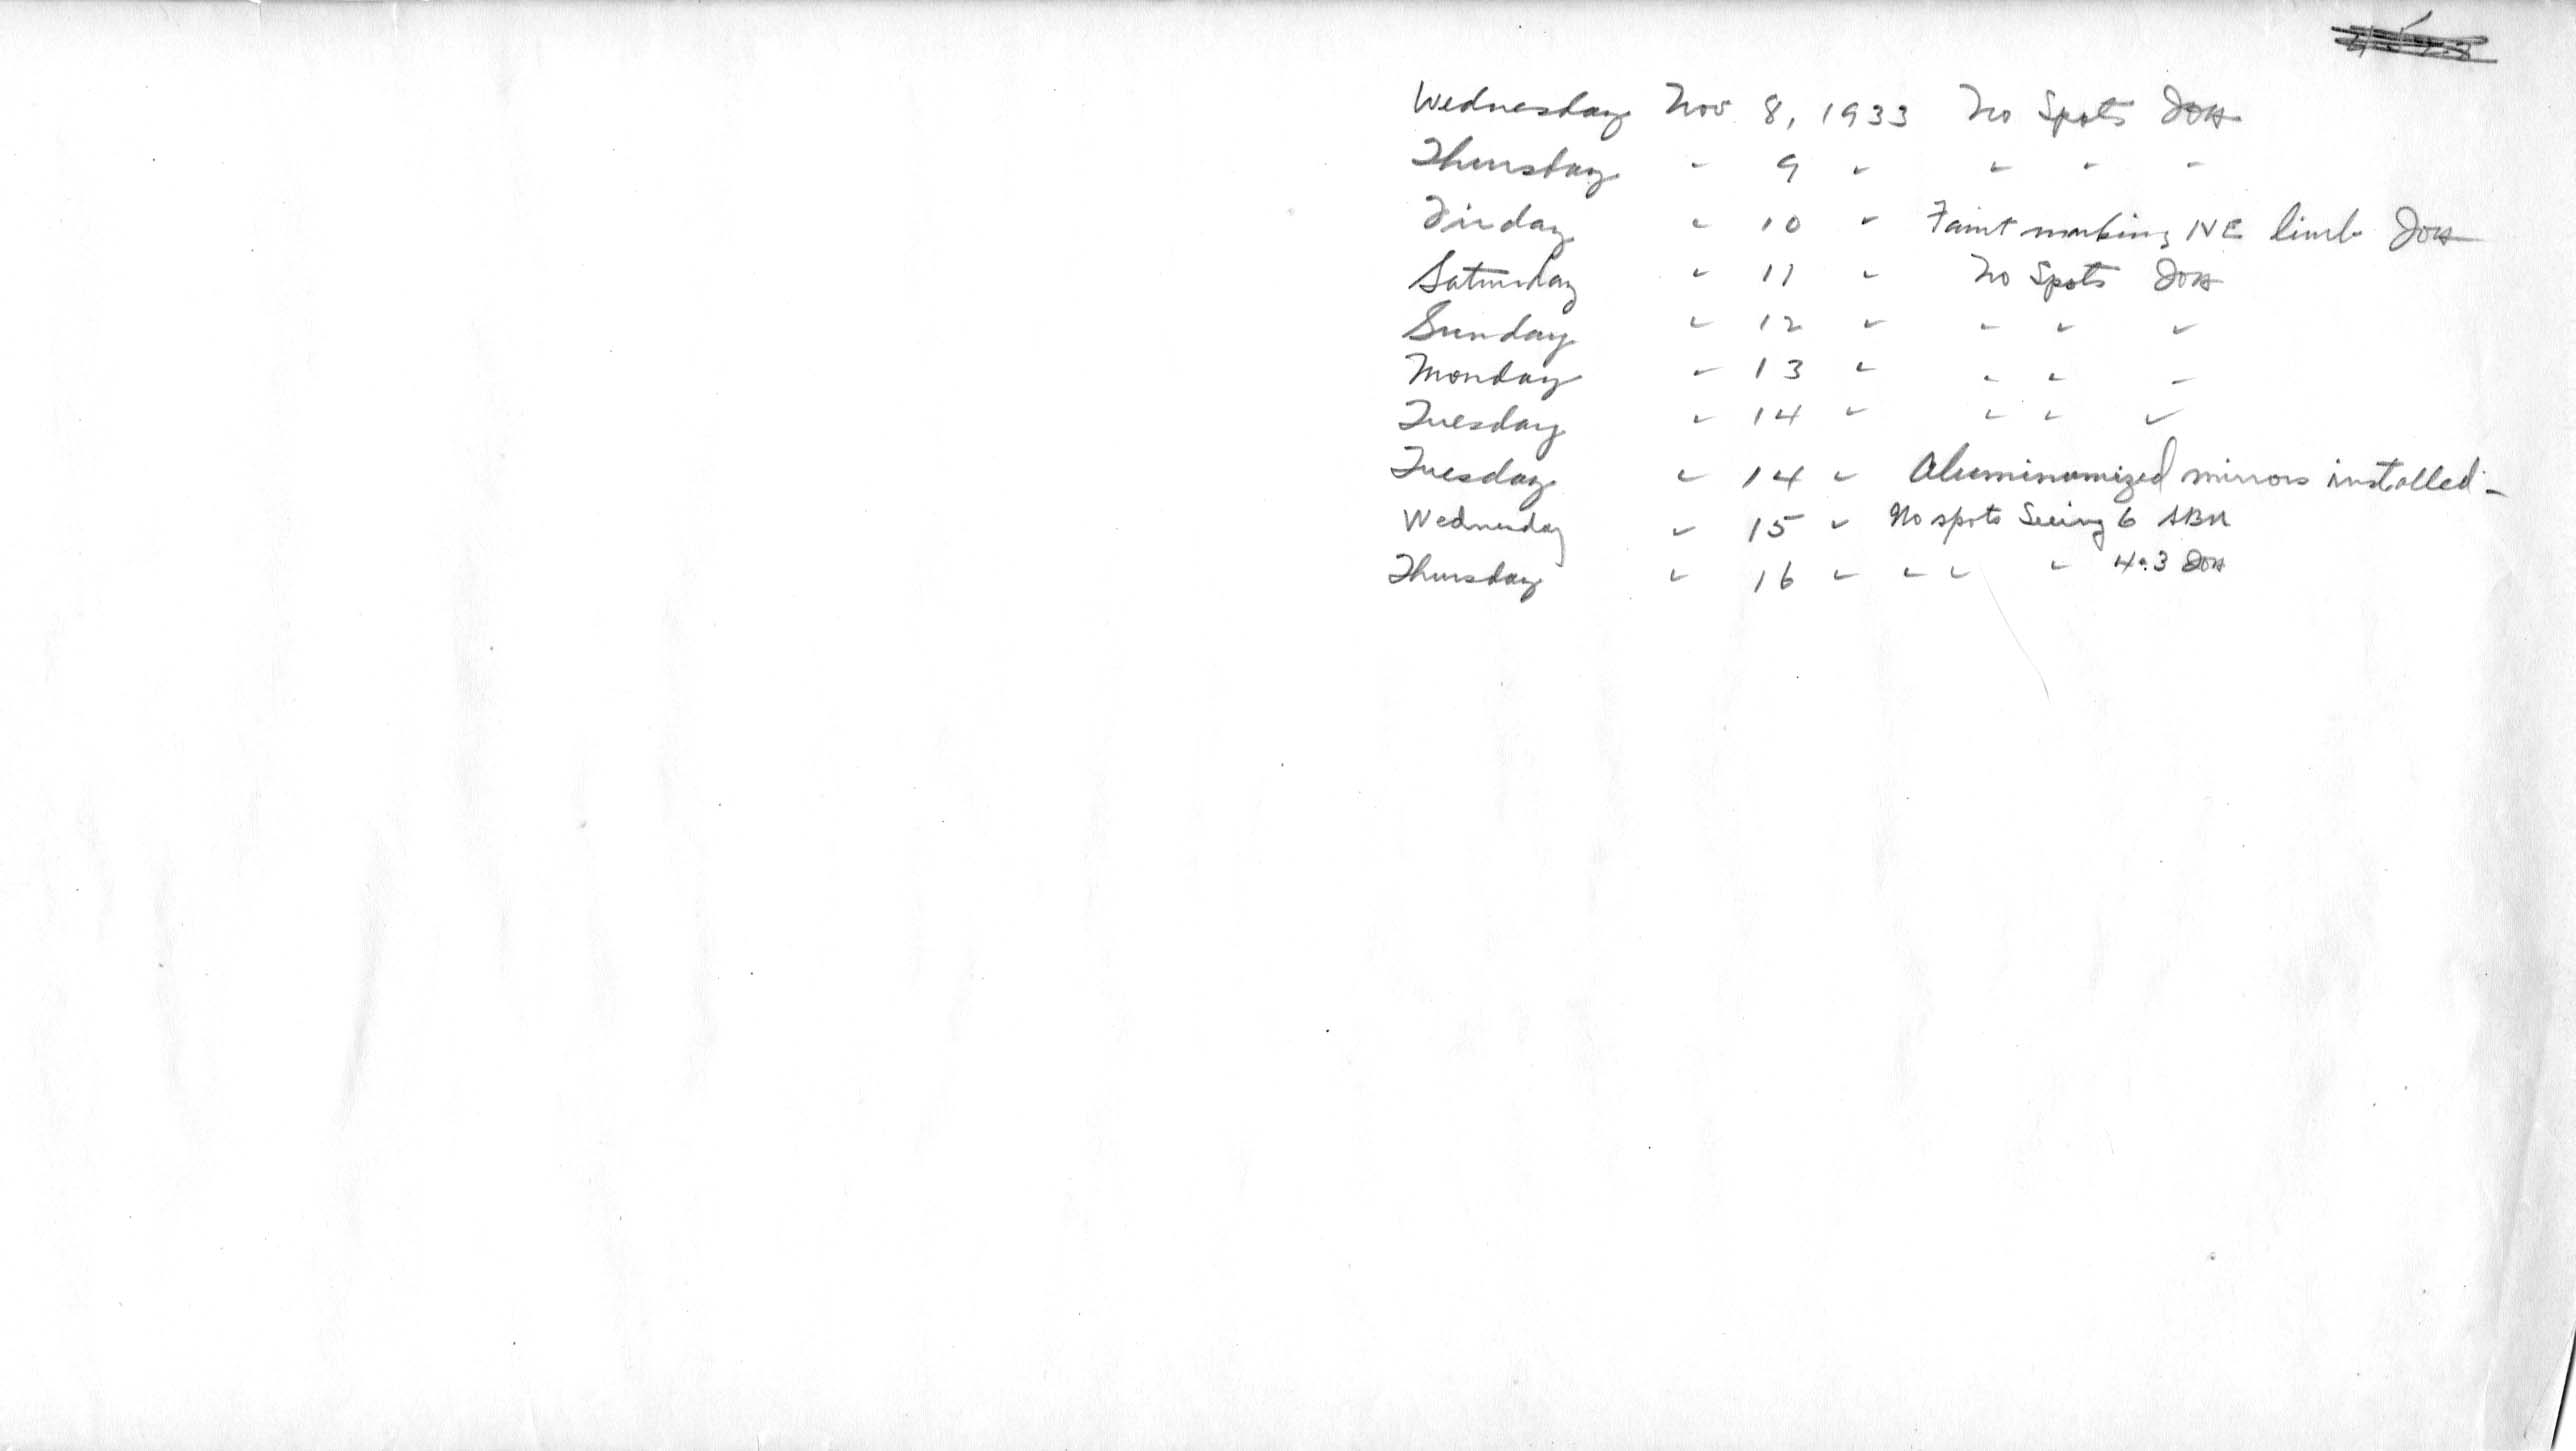 Wednesday Nov 8, 1933 No Spots JOH
Thursday " 9 " " " "
Firday " 10 " Faint marking NE limb JOH
Saturday " 11 " No Spots JOH
Sunday " 12 " " " "
Monday " 13 " " " "
Tuesday " 14 " " " "
Tuesday " 14 " Aluminumized mirrors installed -
Wednesday " 15 " No spots Seeing 6
Thursday " 16 " " " " 4:3 JOH